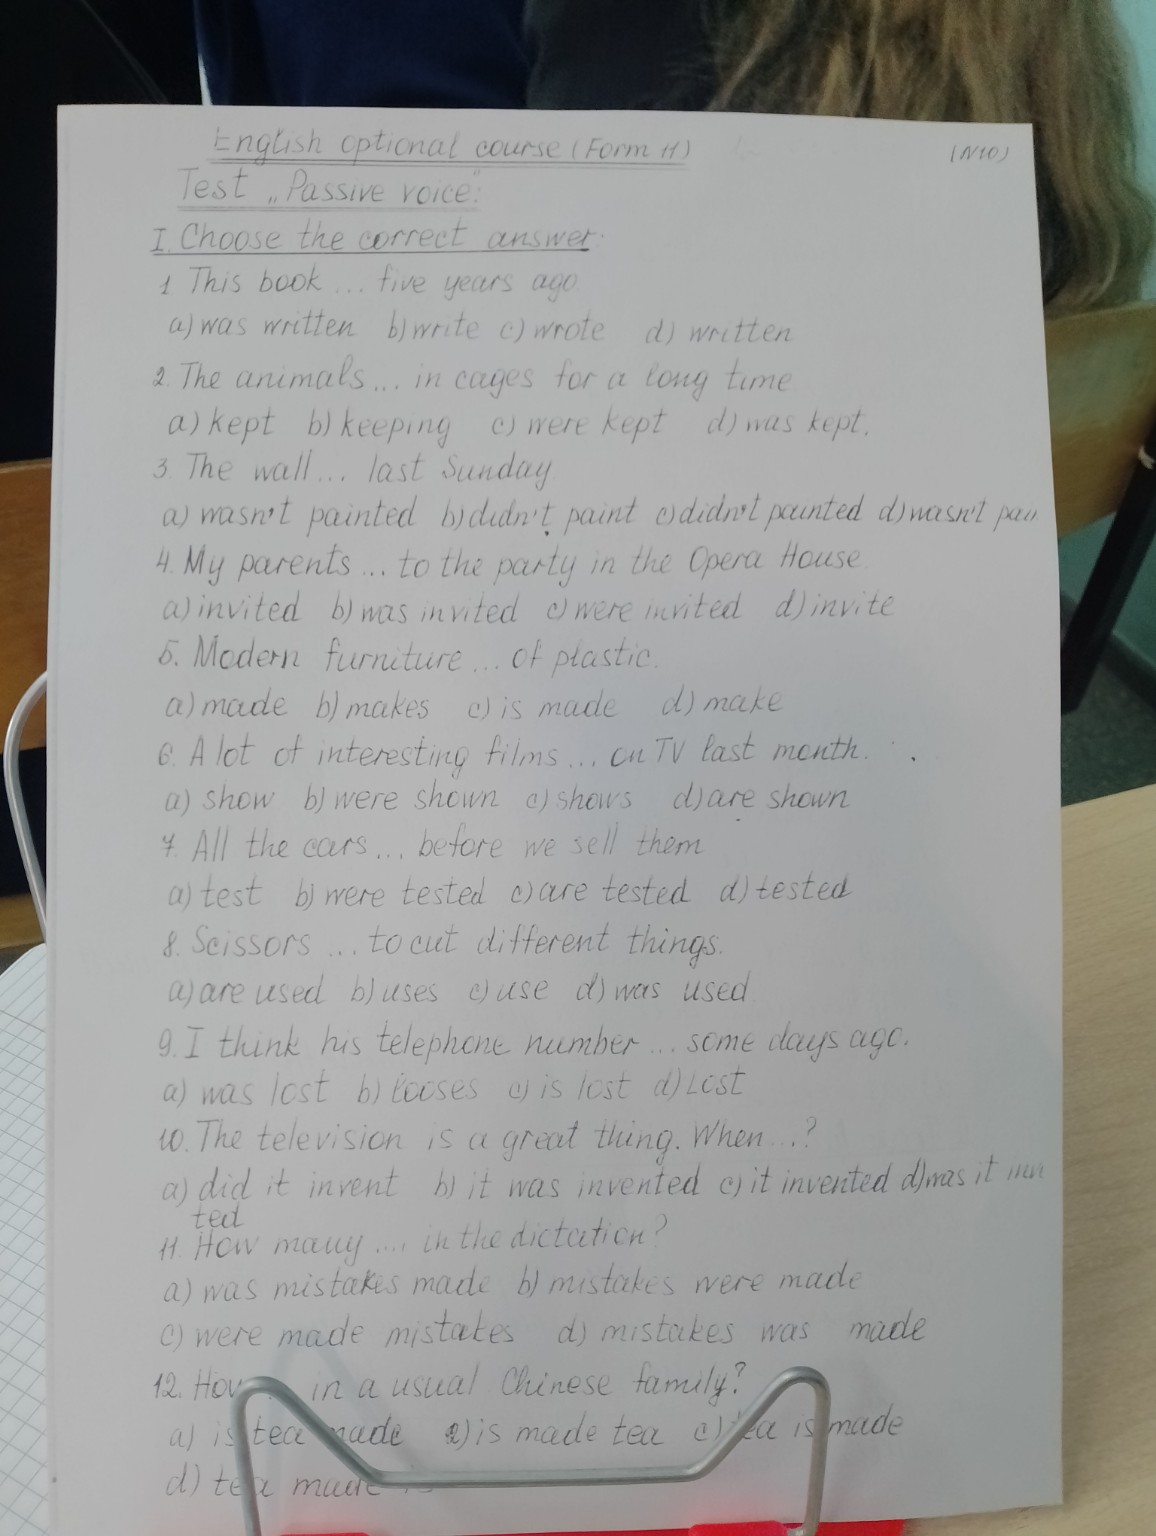 English optional course (Form 11)
(N10)
Test „Passive voice":
I. Choose the correct answer:
1 This book ... five years ago.
a) was written b) write c) wrote d) written
2. The animals ... in cages for a long time
a) kept b) keeping c) were kept d) was kept.
3. The wall ... last Sunday
a) wasn't painted b) didn't paint c) didn't painted d) wasn't pai
4. My parents ... to the party in the Opera House.
a) invited b) was invited c) were invited d) invite
5. Modern furniture ... of plastic.
a) made b) makes c) is made d) make
6. A lot of interesting films ... on TV last month.
a) show b) were shown c) shows d) are shown
7. All the cars ... before we sell them
a) test b) were tested c) are tested d) tested
8. Scissors ... to cut different things.
a) are used b) uses c) use d) was used
9. I think his telephone number ... some days ago.
a) was lost b) looses c) is lost d) Lost
10. The television is a great thing. When ...?
a) did it invent b) it was invented c) it invented d) was it inven
ted
11. How many .... in the dictation?
a) was mistakes made b) mistakes were made
c) were made mistakes d) mistakes was made
12. How in a usual Chinese family?
a) is tea made b) is made tea c) tea is made
d) tea made is